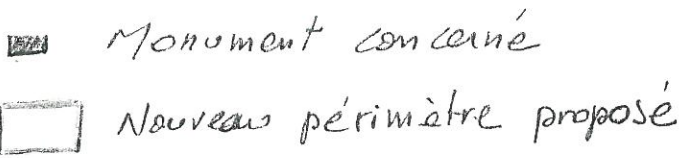 Monument concerné
Nouveau périmètre proposé